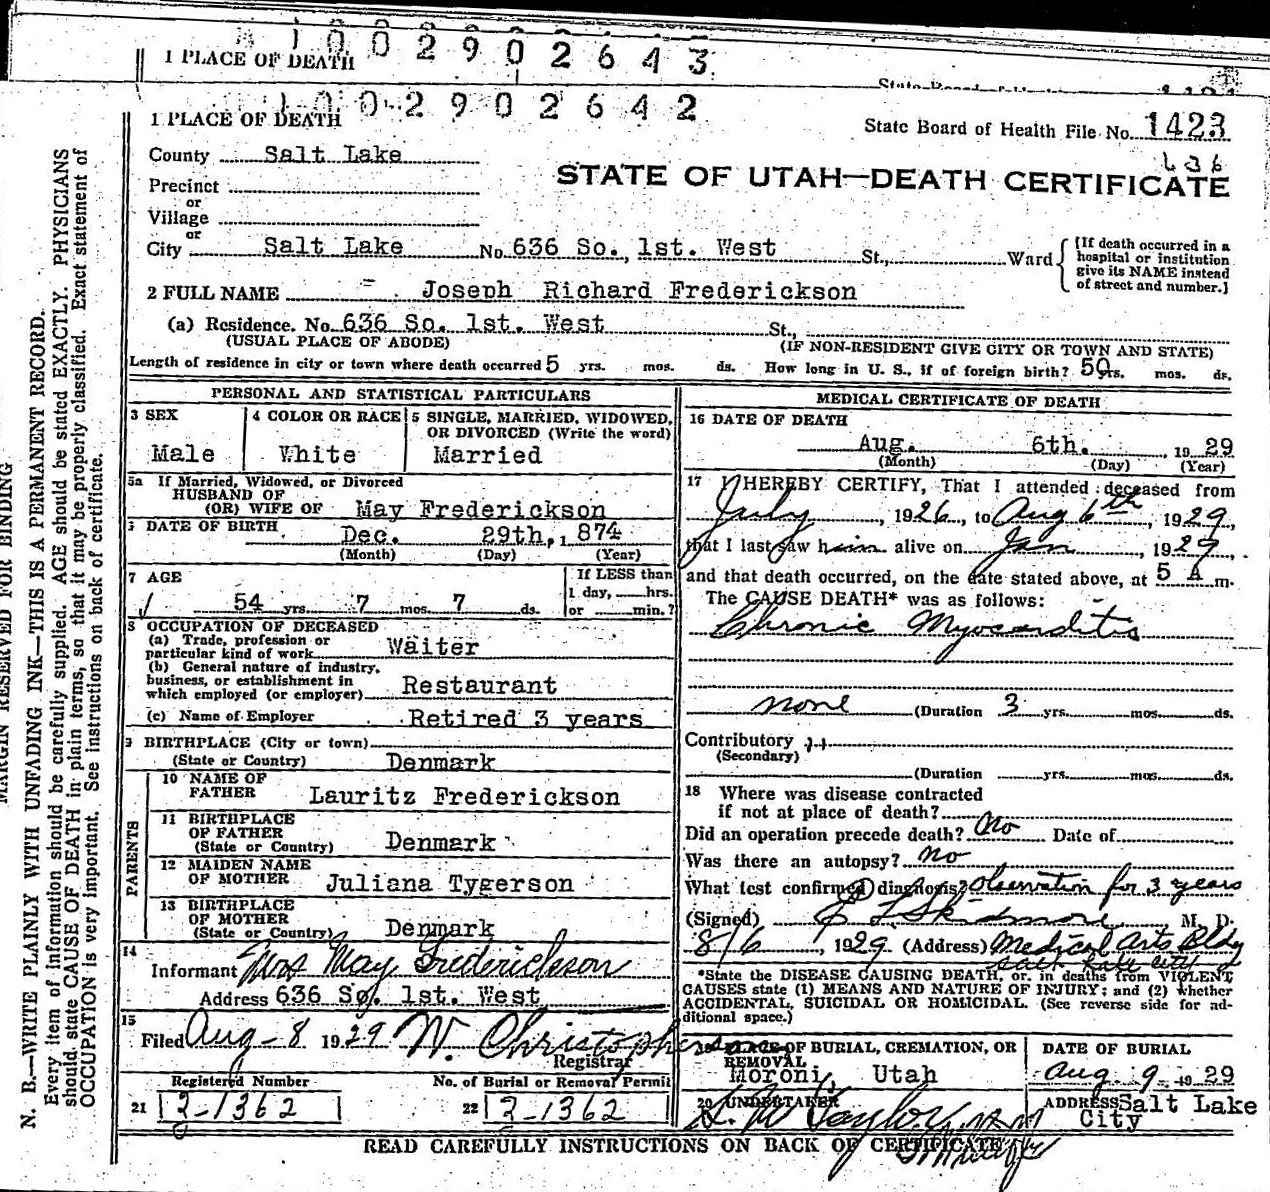 1002902643
1 PLACE OF DEATH
1002902642
1 PLACE OF DEATH
State Board of Health File No. 1423
636
County Salt Lake
STATE OF UTAH—DEATH CERTIFICATE
Precinct
or
Village
or
City Salt Lake No. 636 So. 1st. West St., Ward
[If death occurred in a
hospital or institution
give its NAME instead
of street and number.]
2 FULL NAME Joseph Richard Frederickson
(a) Residence. No. 636 So. 1st. West St.,
(USUAL PLACE OF ABODE) (IF NON-RESIDENT GIVE CITY OR TOWN AND STATE)
Length of residence in city or town where death occurred 5 yrs. mos. ds. How long in U. S., if of foreign birth? 50 yrs. mos. ds.
PERSONAL AND STATISTICAL PARTICULARS
3 SEX
Male
4 COLOR OR RACE
White
5 SINGLE, MARRIED, WIDOWED,
OR DIVORCED (Write the word)
Married
5a If Married, Widowed, or Divorced
HUSBAND OF
(OR) WIFE OF May Frederickson
DATE OF BIRTH Dec. 29th, 1874
(Month) (Day) (Year)
7 AGE
54 yrs. 7 mos. 7 ds.
If LESS than
1 day, hrs.
or min.?
8 OCCUPATION OF DECEASED
(a) Trade, profession or
particular kind of work Waiter
(b) General nature of industry,
business, or establishment in
which employed (or employer) Restaurant
(c) Name of Employer Retired 3 years
9 BIRTHPLACE (City or town)
(State or Country) Denmark
PARENTS
10 NAME OF
FATHER Lauritz Frederickson
11 BIRTHPLACE
OF FATHER
(State or Country) Denmark
12 MAIDEN NAME
OF MOTHER Juliana Tygerson
13 BIRTHPLACE
OF MOTHER
(State or Country) Denmark
14
Informant Mrs May Frederickson
Address 636 So. 1st. West
15
Filed Aug-8 1929 W. Christopherson
Registrar
Registered Number
21 2-1362
No. of Burial or Removal Permit
22 2-1362
MEDICAL CERTIFICATE OF DEATH
16 DATE OF DEATH
Aug. 6th. , 1929
(Month) (Day) (Year)
17 I HEREBY CERTIFY, That I attended deceased from
July , 1926, to Aug 6th , 1929,
that I last saw him alive on Jan , 1929,
and that death occurred, on the date stated above, at 5 A m.
The CAUSE DEATH* was as follows:
Chronic Myocarditis
none (Duration 3 yrs. mos. ds.
Contributory
(Secondary)
(Duration yrs. mos. ds.
18 Where was disease contracted
if not at place of death?
Did an operation precede death? no Date of
Was there an autopsy? no
What test confirmed diagnosis? Observation for 3 years
(Signed) E L Skidmore M. D.
8/6 , 1929 (Address) Medical Arts Bldg
Salt Lake City
*State the DISEASE CAUSING DEATH, or, in deaths from VIOLENT
CAUSES state (1) MEANS AND NATURE OF INJURY; and (2) whether
ACCIDENTAL, SUICIDAL OR HOMICIDAL. (See reverse side for ad-
ditional space.)
PLACE OF BURIAL, CREMATION, OR
REMOVAL
Moroni, Utah
DATE OF BURIAL
Aug. 9 1929
20 UNDERTAKER
ADDRESS Salt Lake
City
READ CAREFULLY INSTRUCTIONS ON BACK OF CERTIFICATE
MARGIN RESERVED FOR BINDING
N. B.—WRITE PLAINLY WITH UNFADING INK—THIS IS A PERMANENT RECORD.
Every item of information should be carefully supplied. AGE should be stated EXACTLY. PHYSICIANS
should state CAUSE OF DEATH in plain terms, so that it may be properly classified. Exact statement of
OCCUPATION is very important. See instructions on back of certificate.